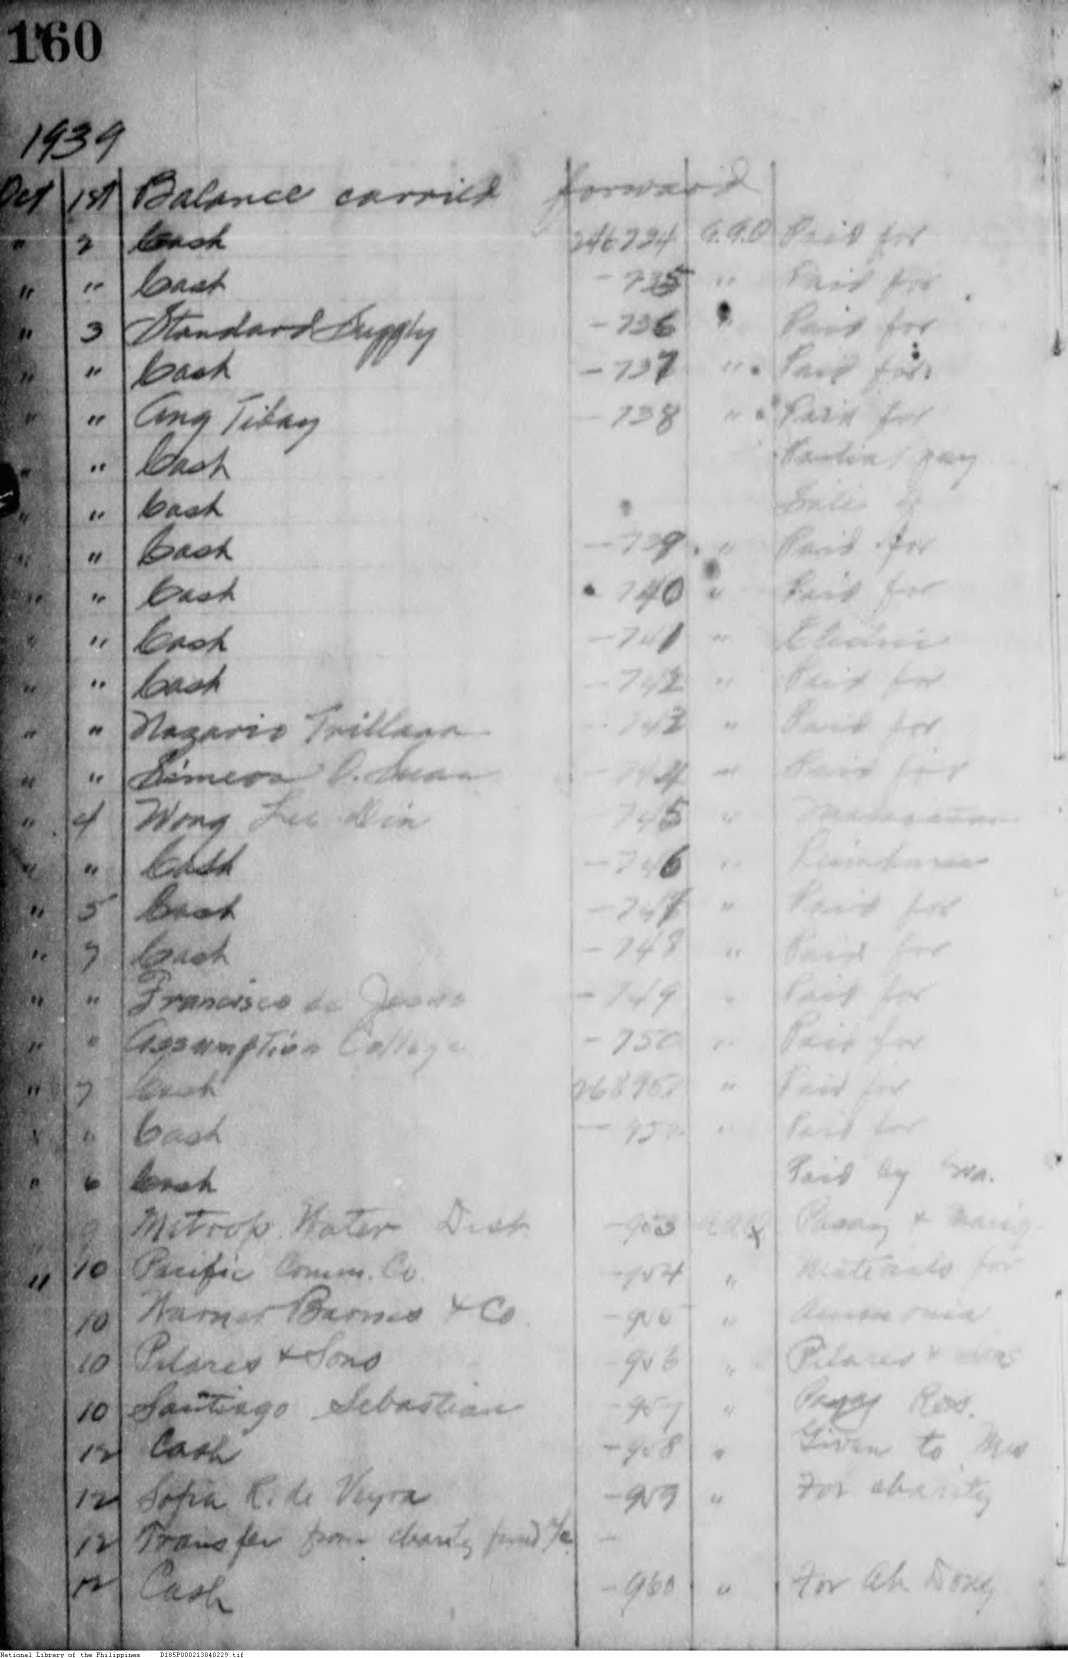 160
1939
Oct 1st Balance carried forward
" 2 Cash 246734 a.a.O Paid for
" " Cash -735 " Paid for
" 3 Standard Supply -736 " Paid for
" " Cash -737 " Paid for
" " Ang Tibay -738 " Paid for
" " Cash Partial pay
" " Cash Sale
" " Cash -739 " Paid for
" " Cash 740 " Paid for
" " Cash -741 " Electric
" " Cash -742 " Paid for
" " Nazario Trillana 743 " Paid for
" " Simeon O. -744 " Paid for
" 4 Wong -745 "
" " Cash -746 "
" 5 Cash -747 " Paid for
" 7 Cash -748 " Paid for
" " Francisco de Jesus -749 " Paid for
" " Assumption College -750 " Paid for
" 7 Cash " Paid for
" " Cash -952 " Paid for
" 6 Cash Paid by
9 Metrop. Water Dist. -953 Pasay +
" 10 Pacific Comm. Co. -954 " Materials for
10 Warner Barnes & Co. -955 " Ammonia
10 Pilares & Sons -956 " Pilares & Sons
10 Santiago Sebastian -957 " Pasay Res.
12 Cash -958 " Given to Mrs
12 Sofia R. de Veyra -959 " For charity
12 Transfer from charity fund a/c -
12 Cash -960 " For Ah Dong
National Library of the Philippines D185P000213840229.tif